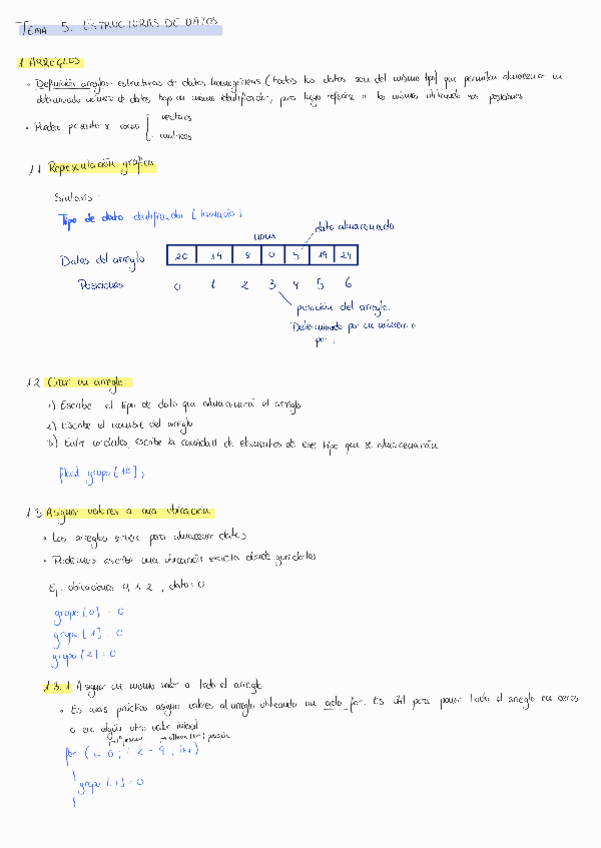 TEMA 5. ESTRUCTURAS DE DATOS
1. ARREGLOS
• Definición arreglos: estructuras de datos homogéneas (todos los datos son del mismo tipo) que permiten almacenar un
determinado número de datos bajo un mismo identificador, para luego referirse a los mismos utilizando sus posiciones
• Pueden presentar x casos vectores
matrices
1.1 Representación gráfica
Sintaxis:
Tipo de dato identificador [tamaño]
dato almacenado
Datos del arreglo 20 14 8 0 5 19 24
Posiciones 0 1 2 3 4 5 6
posición del arreglo.
Determinado por un número
por
1.2 Crear un arreglo
1) Escribe el tipo de dato que almacenará el arreglo
2) Escribe el nombre del arreglo
3) Entre corchetes, escribe la cantidad de elementos de ese tipo que se almacenarán
float grupo [10];
1.3 Asignar valores a una ubicación
• Los arreglos sirven para almacenar datos
• Podemos escribir una ubicación exacta donde guardarlos
Ej: ubicaciones 0, 1 2, dato: 0
grupo [0] = 0
grupo [1] = 0
grupo [2] = 0
1.3.1 Asignar un mismo valor a todo el arreglo
• Es más práctico asignar valores al arreglo utilizando un ciclo for. Es útil para poner todo el arreglo en ceros
o en algún otro valor inicial
for (i = 0; i <= 9; i++)
{
grupo [i] = 0
}